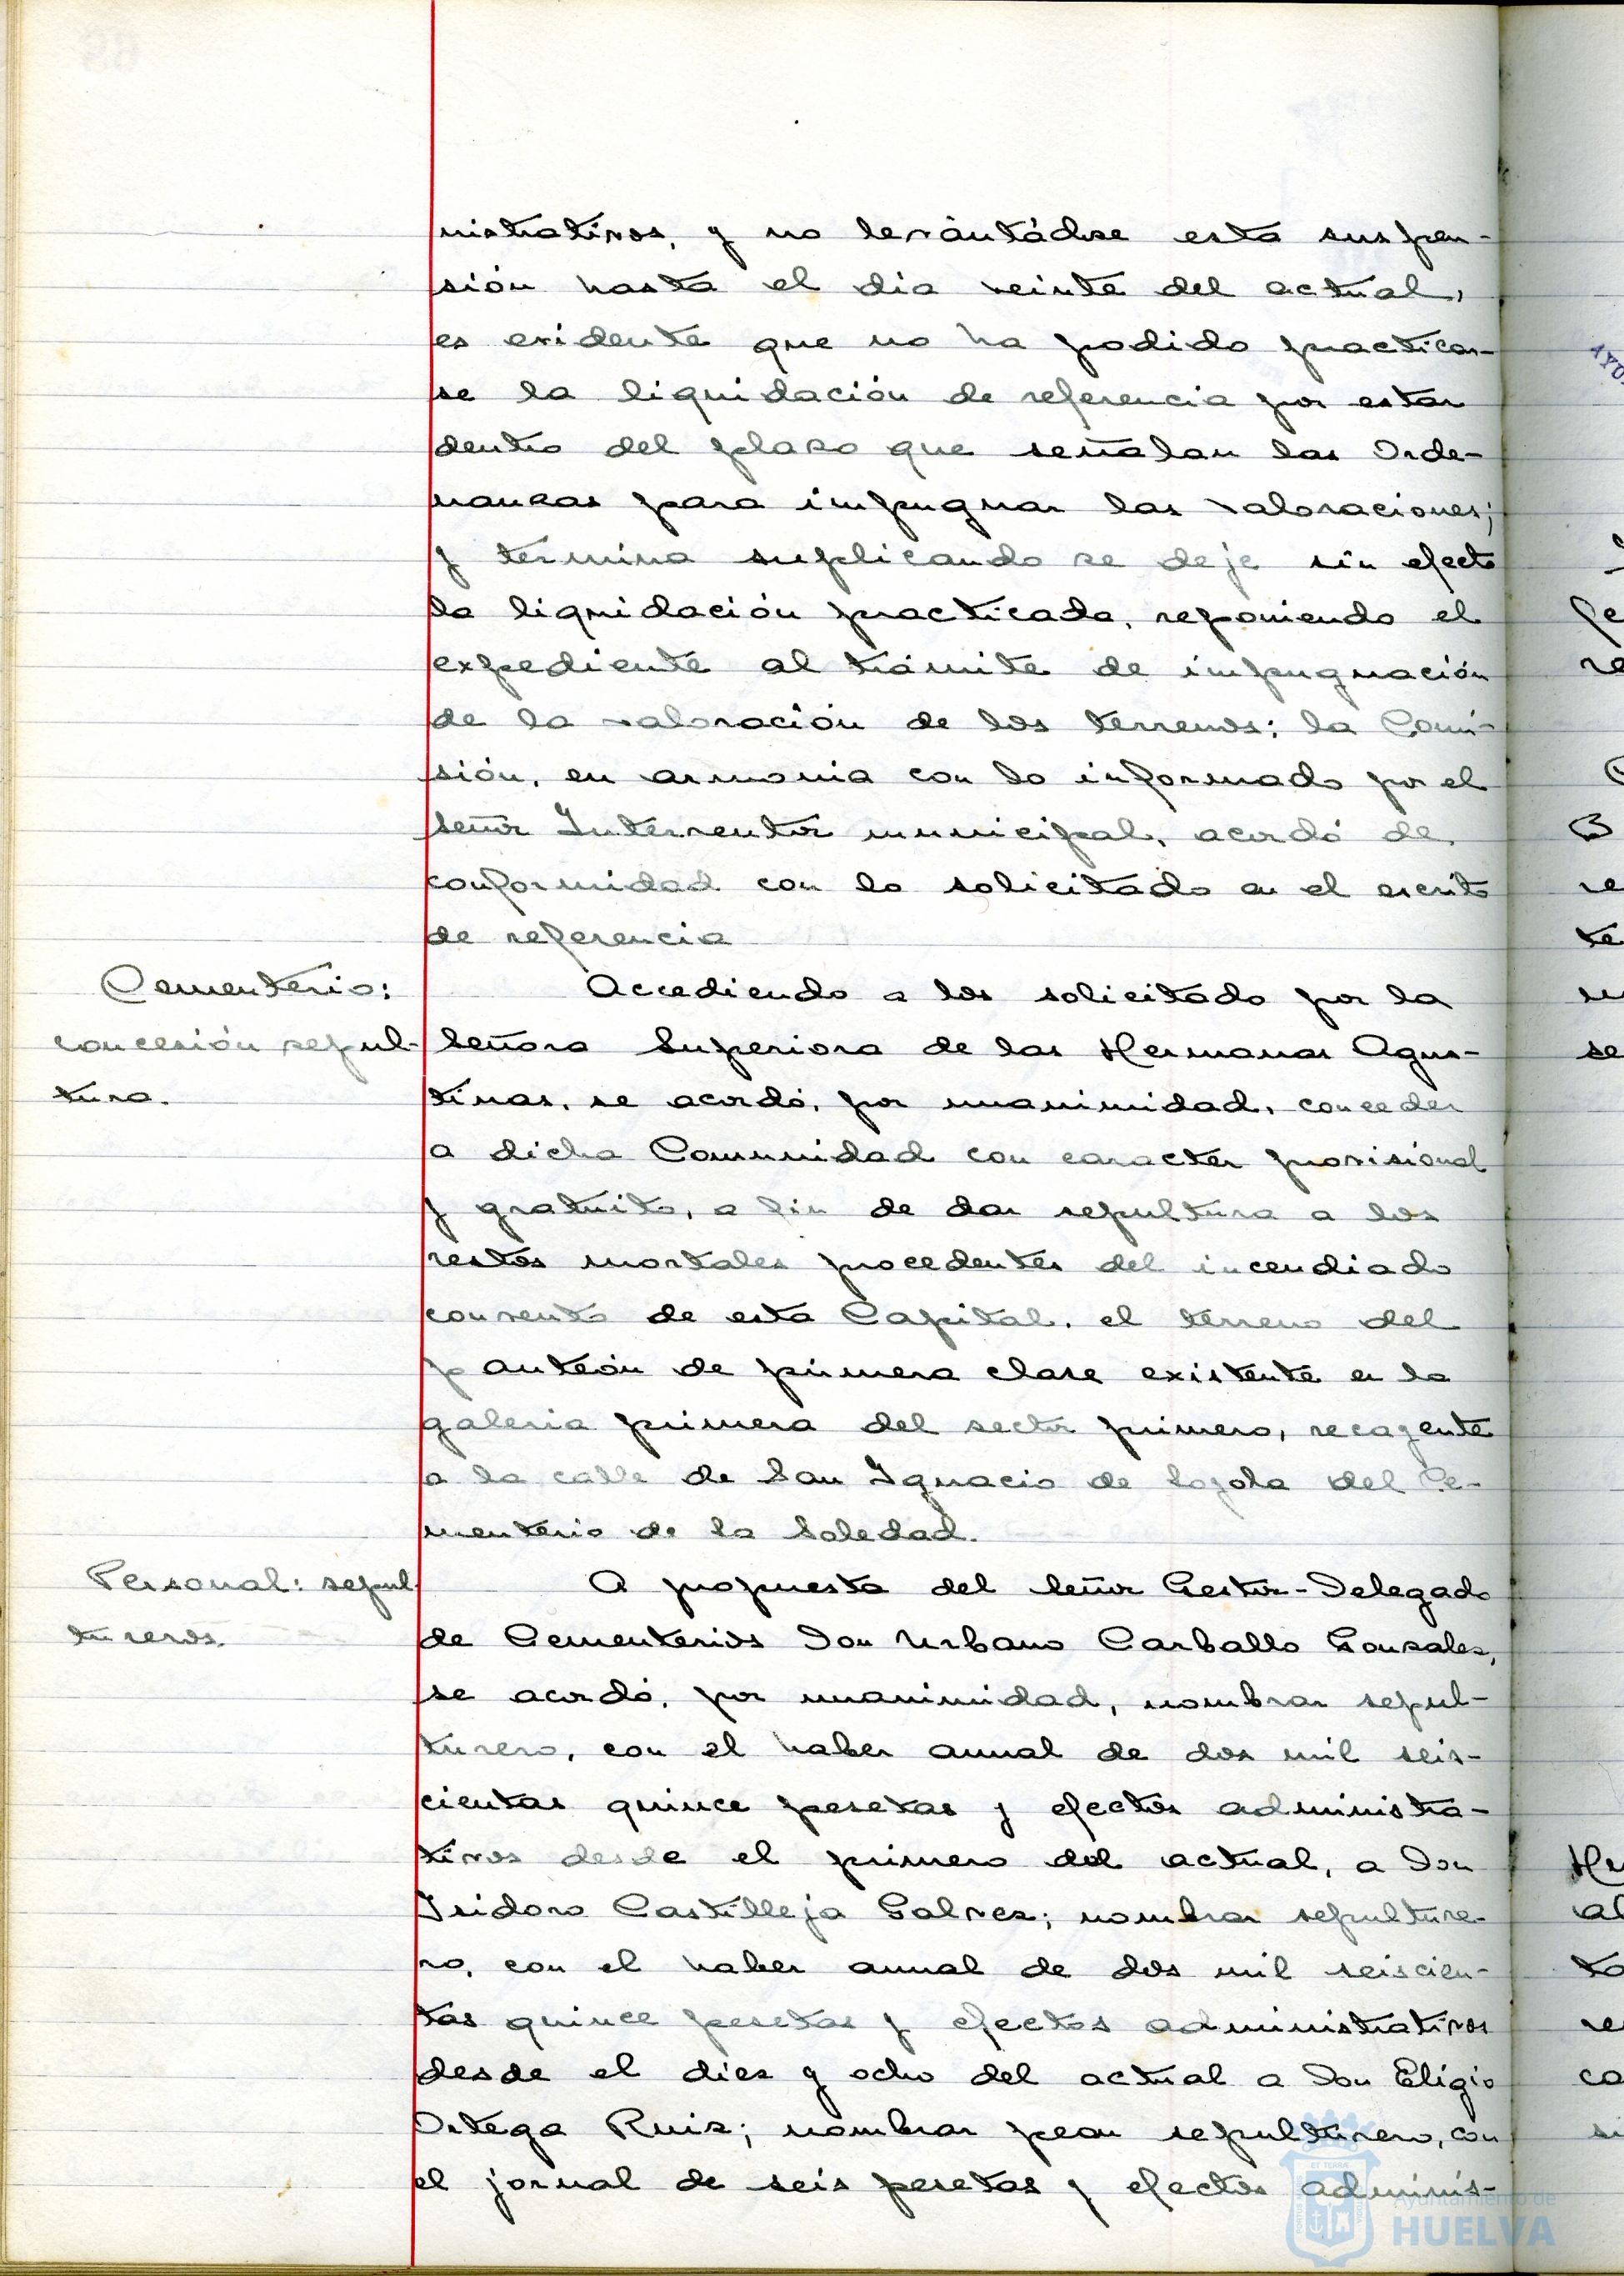 nistrativos, y no levantádose esta suspen-
sión hasta el dia veinte del actual,
es evidente que no ha podido practicar-
se la liquidación de referencia por estar
dentro del plazo que señalan las Orde-
nanzas para impugnar las valoraciones;
y termina suplicando se deje sin efecto
la liquidación practicada, reponiendo el
expediente al trámite de impugnación
de la valoración de los terrenos; la Comi-
sión, en armonia con lo informado por el
señor Interventor municipal, acordó de
conformidad con lo solicitado en el escrito
de referencia
Cementerio:
concesión sepul-
tura.
Accediendo a los solicitado por la
Señora Superiora de las Hermanas Agus-
tinas, se acordó, por unanimidad, conceder
a dicha Comunidad con caracter provisional
y gratuito, a fin de dar sepultura a los
restos mortales procedentes del incendiado
convento de esta Capital, el terreno del
panteón de primera clase existente en la
galeria primera del sector primero, recayente
a la calle de San Ignacio de Loyola del Ce-
menterio de la Soledad.
Personal: sepul
tureros.
A propuesta del señor Gestor-Delegado
de Cementerios Don Urbano Carballo Gonzalez,
se acordó, por unanimidad, nombrar sepul-
turero, con el haber anual de dos mil seis-
cientas quince pesetas y efectos administra-
tivos desde el primero del actual, a Don
Isidoro Castilleja Galvez; nombrar sepulture-
ro, con el haber anual de dos mil seiscien-
tas quince pesetas y efectos administrativos
desde el diez y ocho del actual a Don Eligio
Ortega Ruiz; nombrar peon sepulturero, con
el jornal de seis pesetas y efectos adminis-
Ayuntamiento de
HUELVA